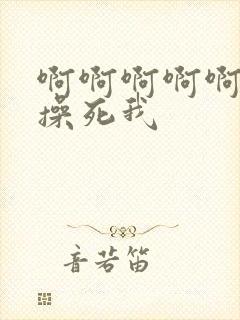 啊啊啊啊啊
操死我
音若笛